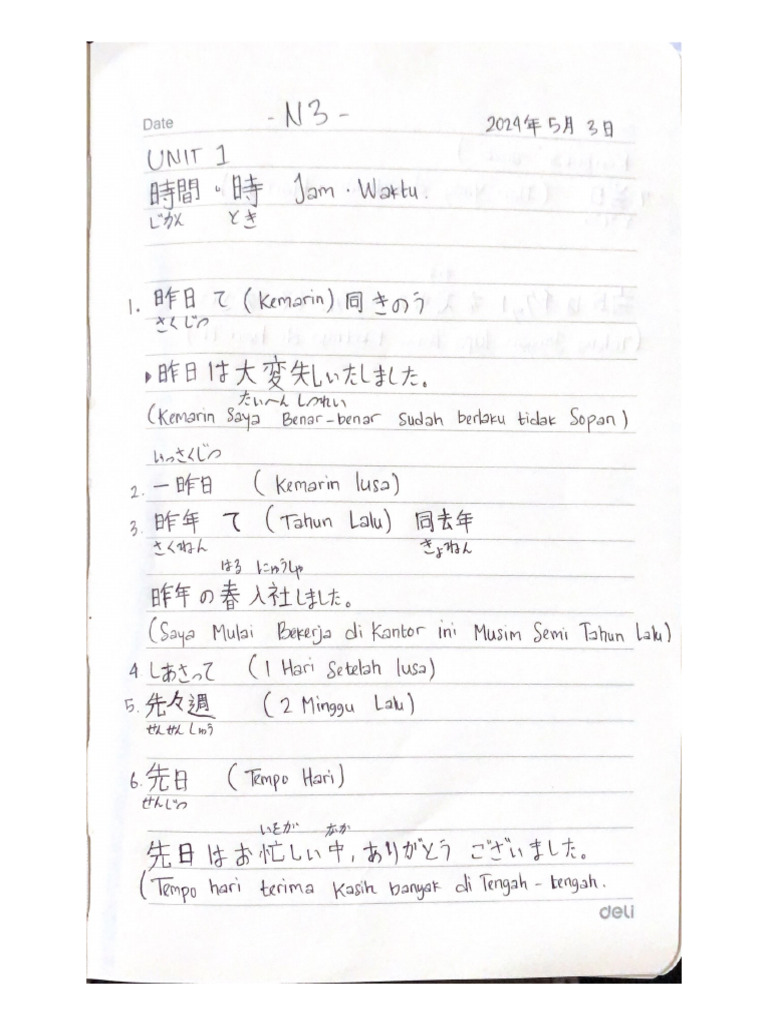 Date - N3 - 2024年5月3日
UNIT 1
時間・時 Jam・Waktu.
じかん とき
1. 昨日 て (Kemarin) 同 きのう
さくじつ
▸昨日は大変失しいたしました。
たいへん しつれい
(Kemarin Saya Benar-benar Sudah berlaku tidak Sopan)
いっさくじつ
2. 一昨日 (Kemarin lusa)
3. 昨年 て (Tahun Lalu) 同去年
さくねん きょねん
はる にゅうしゃ
昨年の春入社しました。
(Saya Mulai Bekerja di Kantor ini Musim Semi Tahun Lalu)
4 しあさって (1 Hari Setelah lusa)
5. 先々週 (2 Minggu Lalu)
せんせんしゅう
6. 先日 (Tempo Hari)
せんじつ
いそが なか
先日はお忙しい中,ありがとうございました。
(Tempo hari terima Kasih banyak di Tengah-tengah.
deli